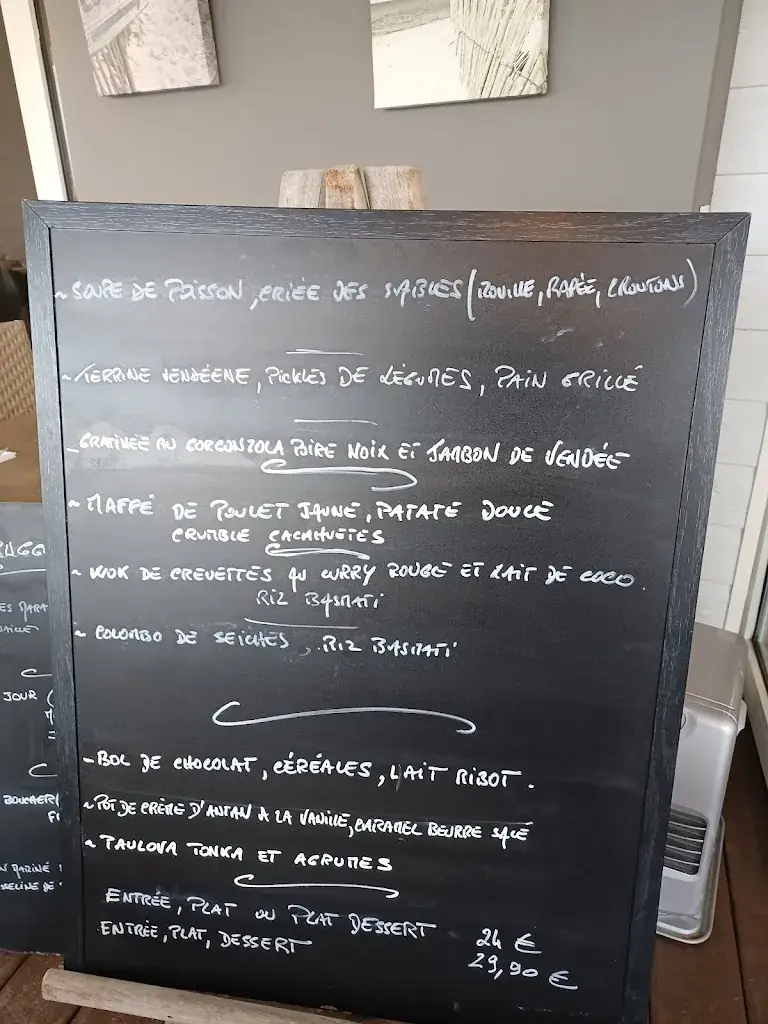 ~ SOUPE DE POISSON, CRIÉE DES SABLES (ROUILLE, RAPÉE, CROUTONS)
~ TERRINE VENDÉENE, PICKLES DE LÉGUMES, PAIN GRILLÉ
- GRATINÉE AU GORGONZOLA POIRE NOIX ET JAMBON DE VENDÉE
~ MAFFÉ DE POULET JAUNE, PATATE DOUCE
CRUMBLE CACAHUETES
~ WOK DE CREVETTES AU CURRY ROUGE ET LAIT DE COCO.
RIZ BASMATI
~ COLOMBO DE SEICHES, RIZ BASMATI
- BOL DE CHOCOLAT, CÉRÉALES, LAIT RIBOT.
~ POT DE CRÈME D'ANTAN A LA VANILLE, CARAMEL BEURRE SALÉ
~ PAVLOVA TONKA ET AGRUMES
ENTRÉE, PLAT OU PLAT DESSERT 24 €
ENTRÉE, PLAT, DESSERT 29,90 €
JOUR (
BOUCHER
MARINÉ